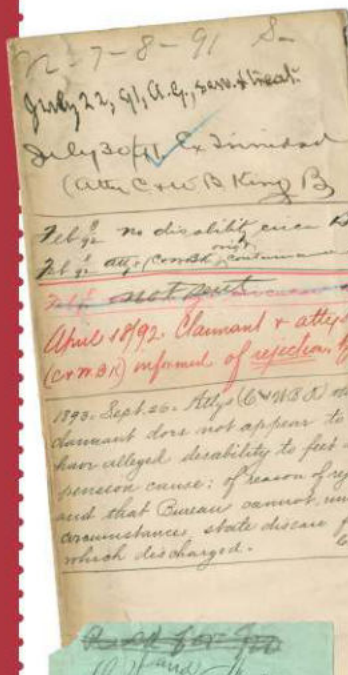 7-8-91 S-
July 22, 91, A.G., serv. & treat.
July 30/91 Ex Trinidad
(Atty C & W B King B
Feb 8 92 no disability since
Feb 8 92 attys (C&WBK)
not sent
April 18/92. Claimant & attys
(C&WBK) informed of rejection.
1893. Sept. 26. Attys (C&WBK)
claimant does not appear to
have alleged disability to feet
pension cause; of reason of
and that Bureau cannot, un
circumstances, state disease
which discharged.
and